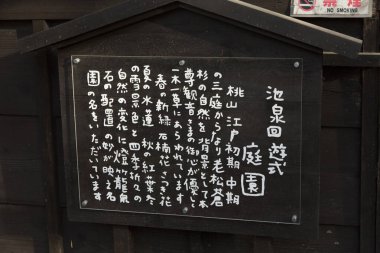 NO SMOKING
池泉回遊式
庭園
桃山 江戸初期 中期
の三庭からなり老松蒼
杉の自然を背景として本
尊観音さまの御心が優しく
一木一草にあらわれています
春の新緑石楠花さつき花
夏の水蓮 秋の紅葉冬
の雪景色と四季折々の
自然の変化に鶯龍氣
石の配置の妙が映え名
園の名をいただいています